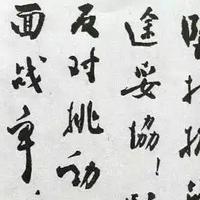 途妥協！
反对挑动
面战争，